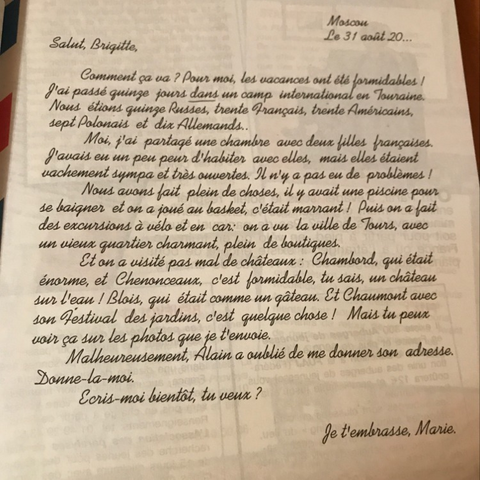 Moscou
Le 31 août 20...
Salut, Brigitte,
Comment ça va ? Pour moi, les vacances ont été formidables !
J'ai passé quinze jours dans un camp international en Touraine.
Nous étions quinze Russes, trente Français, trente Américains,
sept Polonais et dix Allemands..
Moi, j'ai partagé une chambre avec deux filles françaises.
J'avais eu un peu peur d'habiter avec elles, mais elles étaient
vachement sympa et très ouvertes. Il n'y a pas eu de problèmes !
Nous avons fait plein de choses, il y avait une piscine pour
se baigner et on a joué au basket, c'était marrant ! Puis on a fait
des excursions à vélo et en car: on a vu la ville de Tours, avec
un vieux quartier charmant, plein de boutiques.
Et on a visité pas mal de châteaux : Chambord, qui était
énorme, et Chenonceaux, c'est formidable, tu sais, un château
sur l'eau ! Blois, qui était comme un gâteau. Et Chaumont avec
son Festival des jardins, c'est quelque chose ! Mais tu peux
voir ça sur les photos que je t'envoie.
Malheureusement, Alain a oublié de me donner son adresse.
Donne-la-moi.
Ecris-moi bientôt, tu veux ?
Je t'embrasse, Marie.